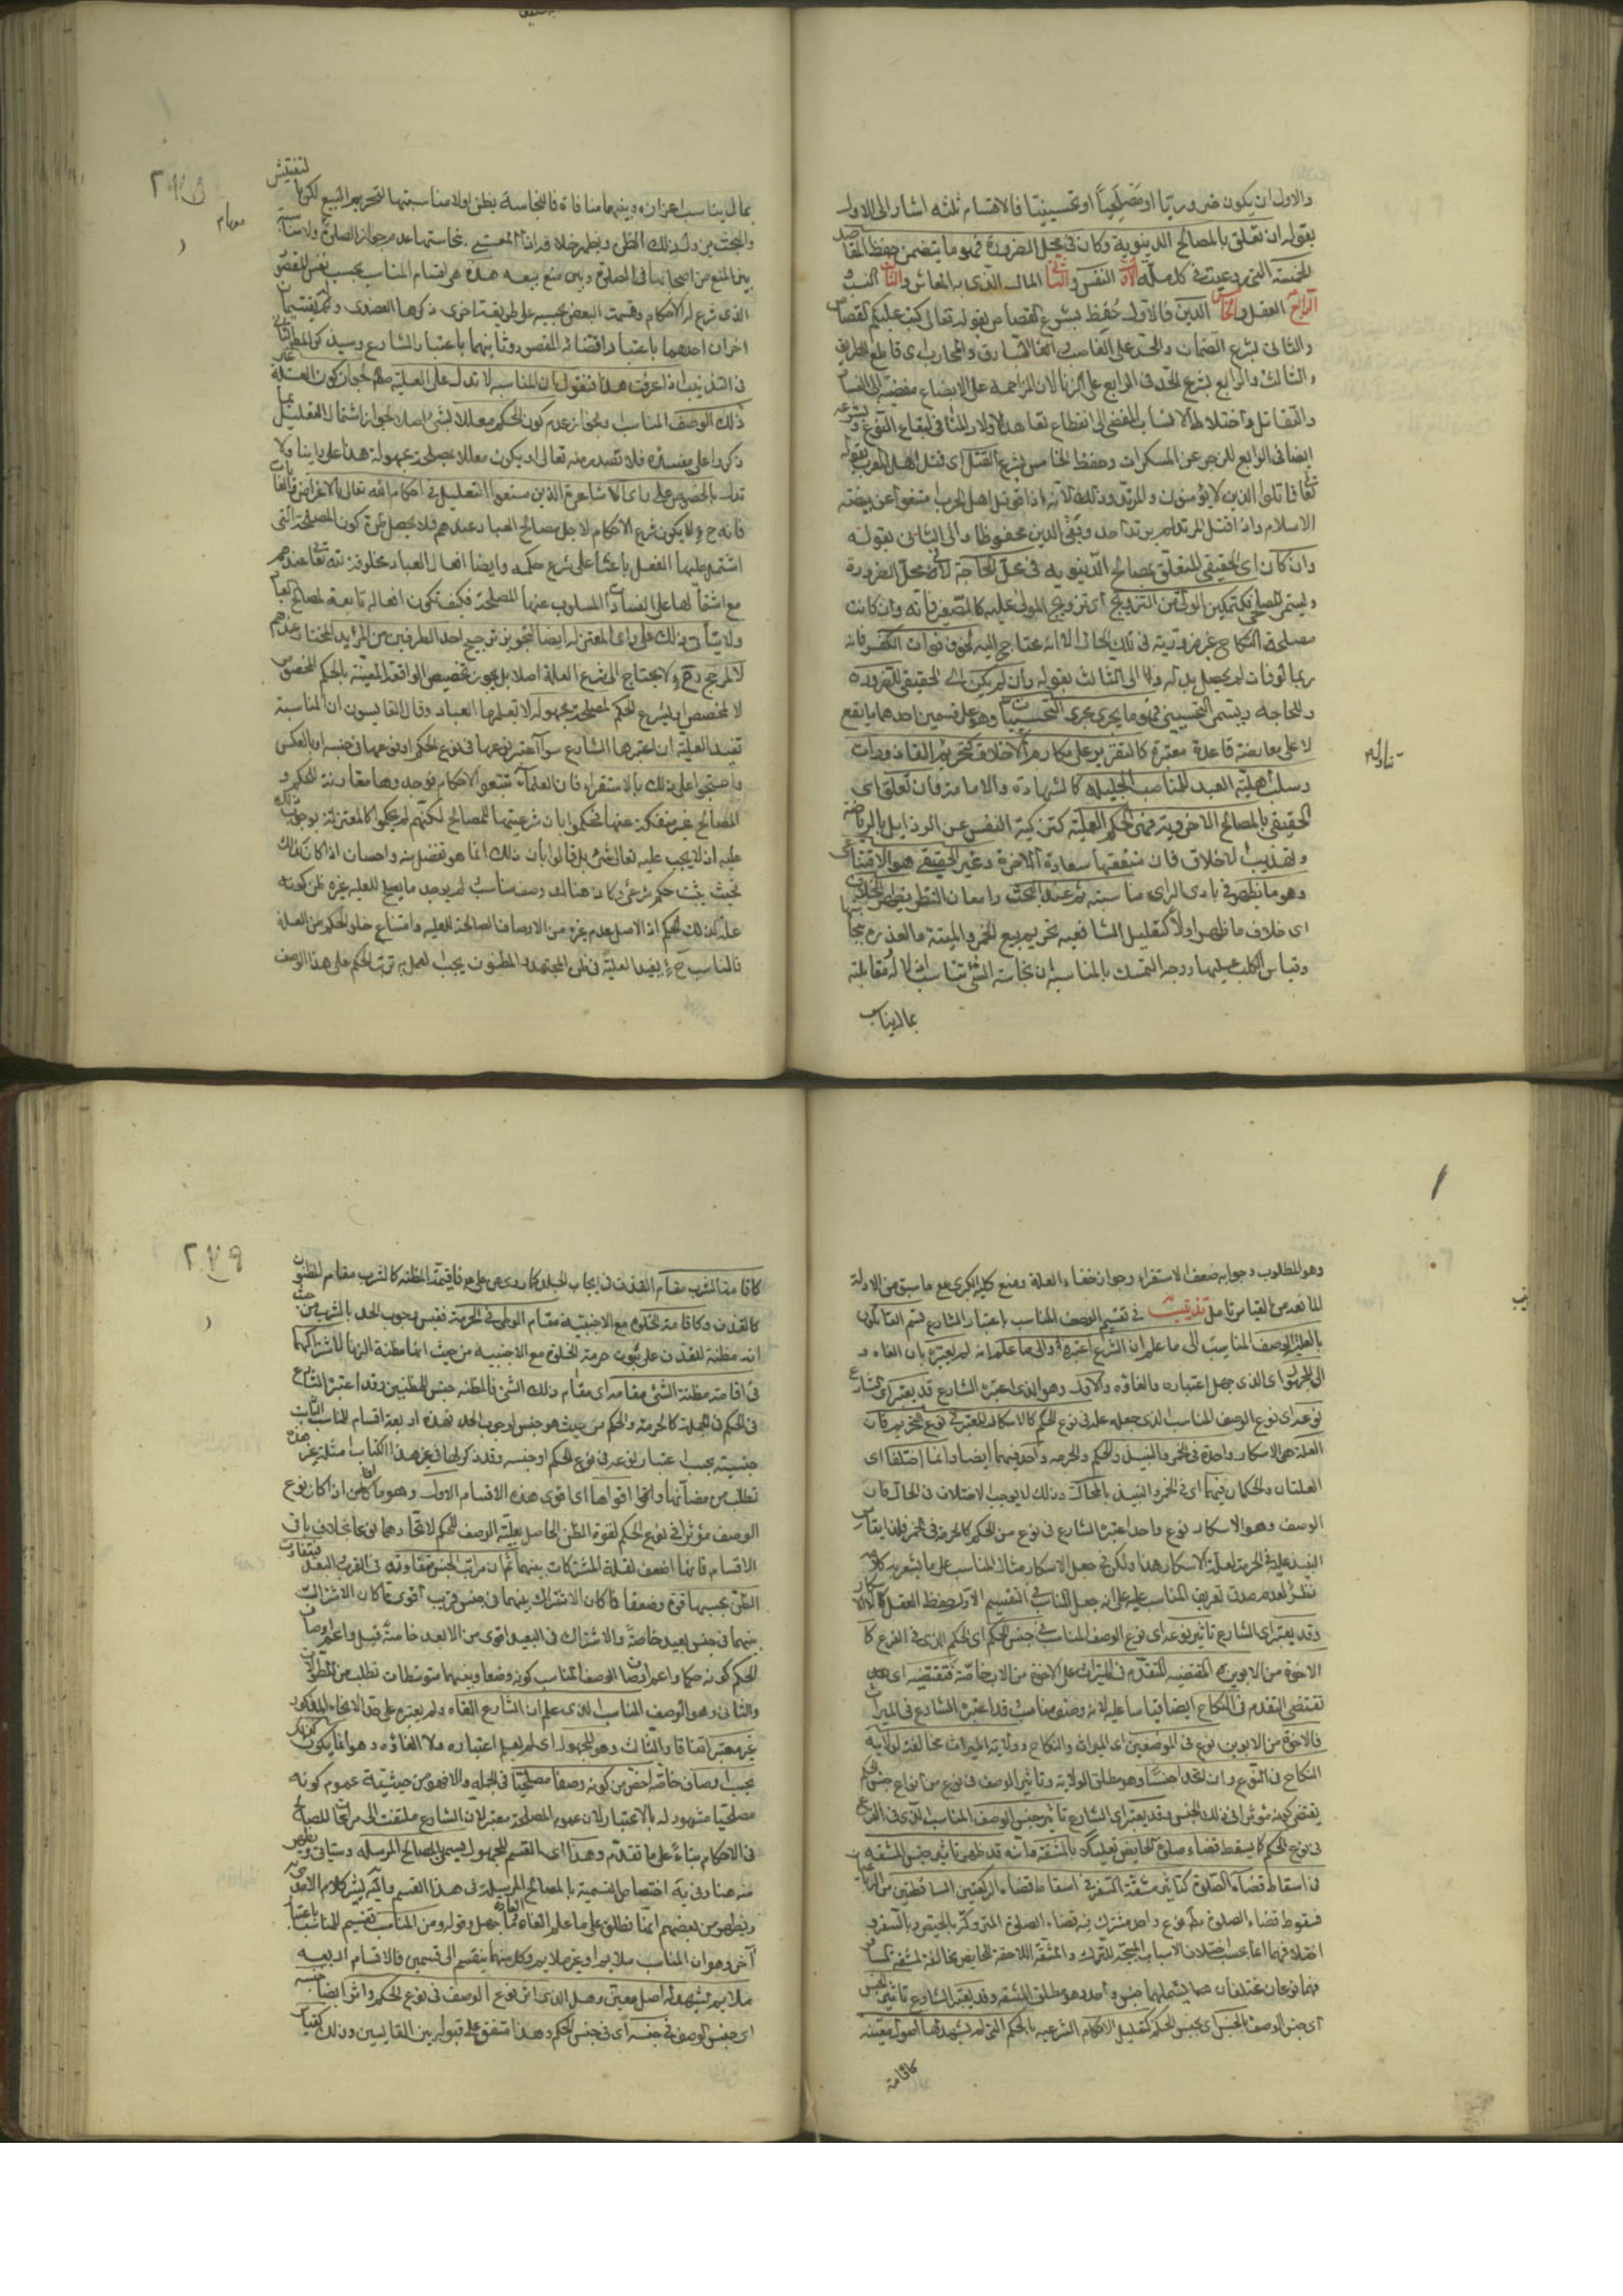 والاول ان يكون ضروريا او مصلحيا او تحسينيا فالاقسام ثلثه اشار الى الاول
بقوله ان تعلق بالمصالح الدنيوية وكان في محل الضرورة فهو ما يتضمن حفظ المقاصد
الخمسة التي روعيت في كل ملة الاول النفس والثاني المال الذي به المعاش والثالث النسب و
الرابع العقل والخامس الدين فالاول حفظ بشرع القصاص بقوله تعالى كتب عليكم القصاص
والثاني بشرع الضمان والحد على الغاصب السارق والمحارب اى قاطع الطريق
والثالث والرابع بشرع الحد في الرابع على الزنا لان المزاحمة على الابضاع مفضية الى الفساد
والتقاتل واختلاط الانساب المفضي الى انقطاع تعاهد الاولاد المنافي لبقاء النوع و بشرعه
ايضا في الرابع للزجر عن المسكرات وحفظ الخامس بشرع القتل اى قتل اهل الحرب بقوله
تعالى قاتلوا الذين لا يؤمنون والمرتد وذلك لانه اذا قوتل اهل الحرب منعوا عن بيضة
الاسلام واذا قتل المرتد لم يرتد احد وبقى الدين محفوظا والى الثاني بقوله
وان كان اى الحقيقي المتعلق بمصالح الدنيويه في محل الحاجة لا في محل الضرورة
ويسمى المصلحي كتمكين الولي من التزويج اى تزويج المولى عليه كالصغير فانه وان كانت
مصلحة النكاح غير ضرورية في تلك الحال الا انه محتاج اليه لخوف فوات الكفو فانه
ربما لو فات لم يحصل بدله والى الثالث بقوله وان لم يكن اى الحقيقي للضرورة
والحاجة ويسمى التحسيني فهو ما يجرى مجرى التحسينيات وهو على قسمين احدهما ما يقع
لا على معارضة قاعدة معتبرة كالتقرير على مكارم الاخلاق كتحريم القاذورات
وسلب اهلية العبد للمناصب الجليله كالشهادة والامامة فان تعلق اى
الحقيقي بالمصالح الاخروية فهي الحكم العلية كتزكية النفس عن الرذايل بالرياضة
وتهذيب الاخلاق فان منفعتها سعادة الاخرة وغير الحقيقي هو الاقناعي
وهو ما يظهر في بادى الراى مناسبته ثم عند البحث وامعان النظر يظهر الخلاف
اى خلاف ما ظهر اولا كتعليل الشافعيه تحريم بيع الخمر والميتة والعذرة بنجاستها
وقياس الكلب عليها ووجه التمسك بالمناسبة ان نجاسة الشئ تناسب اذلاله ومقابلته
بمال يناسب
تناوله
بمال يناسب اعزازه وبينهما منافاة فالنجاسة يظن اولا مناسبتها لتحريم البيع لكن بالتفتيش
والبحث يزول ذلك الظن ويظهر خلافه
بين المنع من استصحابها في الصلوة وبين منع بيعه هذه هى اقسام المناسب بحسب نفس المقصود
الذى شرع له الاحكام وقسمت البعض بحسبه على طريقة اخرى ذكرها العضدى وله تقسيمان
اخران احدهما باعتبار افضائه المقصود وثانيهما باعتبار الشارع وسيذكر المص الثاني
في التذنيب اذا عرفت هذا فنقول ان المناسبة لا تدل على العلية لجواز كون العلة غير
ذلك الوصف المناسب وبجواز عدم كون الحكم معللا بشئ اصلا لجواز اشتمال التعليل بما
ذكروا على مفسدة فلا تصدر منه تعالى او يكون معللا بمصلحة مجهولة هذا على راينا ولا
تدل بالخصوص على راى الاشاعرة الذين منعوا التعليل في احكام الله تعالى بالاغراض والغايات
فانه ح لا يكون شرع الاحكام لاجل مصالح العباد عندهم فلا يحصل من كون المصلحة التي
اشتمل عليها الفعل باعثا على شرع حكمه وايضا افعال العباد مخلوقة لله تعالى عندهم
مع اشتمالها على الفساد المسلوب عنها المصلحة فكيف تكون افعاله تابعة لمصالح العباد
ولا يتاتى ذلك على راى المعتزله ايضا لتجويز ترجيح احد الطرفين من المريد المختار عندهم
لا لمرجح وح لا يحتاج الى شرع العلة اصلا بل يجوز تخصيص الواقعة المعينة بالحكم المخصوص
لا لمخصص او لشرع الحكم لمصلحة مجهولة لا تعلمها العباد وقال القايسون ان المناسبة
تفيد العلية ان اعتبرها الشارع سواء اعتبر نوعها في نوع الحكم او نوعها في جنسه او بالعكس
واحتجوا على ذلك بالاستقراء فان العلماء تتبعوا الاحكام فوجدوها مقارنة للحكم و
المصالح غير منفكة عنها فحكموا بان شرعيتها للمصالح لكنهم لم يحكموا كالمعتزلة بوجوب ذلك
عليه اذ لا يجب عليه تعالى شئ بل قالوا بان ذلك انما هو تفضل منه واحسان اذا كان كذلك
فحيث يثبت حكم شرعى وكان هناك وصف مناسب لم يوجد ما يصلح للعليه غيره ظن كونه
علة لذلك الحكم اذ الاصل عدم غيره من الاوصاف الصالحة للعليه وامتناع خلو الحكم من العلة
فالمناسب ح يفيد العلية في ظن المجتهد والمظنون يجب العمل به ترتب الحكم على هذا الوصف
وهو المطلوب وجوابه ضعف الاستقراء وجواز خفاء العلة ومنع كلية الكبرى مع ما سبق من الادلة
المانعة من القياس تامل تذنيب في تقسيم الوصف المناسب باعتبار الشارع قسم القائلون
بالعلية الوصف المناسب الى ما علم ان الشرع اعتبره والى ما علم انه لم يعتبره بان الغاه و
الى المجهول اى الذى جهل اعتباره والغاؤه والاول وهو الذى اعتبره الشارع قد يعتبر اى الشارع
نوعه اى نوع الوصف المناسب الذى جعله علة في نوع الحكم كالاسكار المعتبر في نوع التحريم فان
العلة هى الاسكار واحدة في الخمر والنبيذ والحكم والحرمه واحد فيهما ايضا وانما اختلفا اى
العلتان والحكمان فيهما اى في الخمر والنبيذ بالمحال وذلك لا يوجب الاختلاف في الحال فان
الوصف وهو الاسكار نوع واحد اعتبره الشارع في نوع من الحكم كالحرمة في الخمر فلذا يقاس
النبيذ عليه في الحرمة لعلة الاسكار هذا ولكن في جعل الاسكار مثال المناسب على ما يشعر به كلامه
نظر لعدم صدق تعريف المناسب عليه على انه جعل المناسب في التقسيم الاول حفظ العقل لا الاسكار
وقد يعتبر اى الشارع تاثير نوعه اى نوع الوصف المناسب في جنس الحكم اى الحكم الذى في الفرع كا
الاخوة من الابوين المقتضيه للتقدم في الميراث على الاخوة من الاب خاصة فتقتضيه اى
تقتضى التقدم في النكاح ايضا قياسا عليه لانه وصف مناسب قد اعتبره الشارع في الميراث
فالاخوة من الابوين نوع في الموضعين اى الميراث والنكاح وولاية الميراث مخالفة لولاية
النكاح في النوع وان اتحدا جنسا وهو مطلق الولاية وتاثير الوصف في نوع من انواع جنس الحكم
يقتضى كونه مؤثرا في ذلك الجنس وقد يعتبر اى الشارع تاثير جنس الوصف المناسب الذى في الفرع
في نوع الحكم كما يسقط قضاء صلوة الحايض تعليلا بالمشقة فانه قد ظهر تاثير جنس المشقه
في اسقاط قضاء الصلوة كتاثير مشقة السفر في اسقاط قضاء الركعتين الساقطتين من الرباعيات
فسقوط قضاء الصلوة نوع واحد مشترك فيه قضاء الصلوة المتروكة بالحيض وبالسفر و
اختلافهما انما بحسب اختلاف الاسباب المبيحة للترك والمشقة اللاحقة للحايض مخالفة لمشقة المسافر
فهما نوعان مختلفان يشملهما جنس واحد وهو مطلق المشقه وقد يعتبر الشارع تاثير الجنس
اى جنس الوصف بالجنس اى بجنس الحكم كتعليل الاحكام الشرعيه بالحكم التي لم يشهد لها اصول معينه
كاقامة
كاقامة الشرب مقام القذف في ايجاب الجلد كما روى عن على ع فاقيمت المظنه كالشرب مقام المظنون
كالقذف وكاقامة الخلوة مع الاجنبية مقام الوطى في الحرمة فقيس وجوب الحد بالشرب من حيث
انه مظنة للقذف على ثبوت حرمة الخلوة مع الاجنبية من حيث انها مظنة الزنا لاشتراكهما
في اقامة مظنة الشئ مقامه اى مقام ذلك الشئ فالمظنه جنس المظنتين وقد اعتبره الشارع
في الحكم في الجملة كالحرمة والحكم من حيث هو جنس لوجوب الحد فهذه اربعة اقسام للمناسب الثابت
جنسيته بحسب اعتبار نوعه في نوع الحكم او جنسه وقد ذكر لها في غير هذا الكتاب امثلة غير هذه
تطلب من مضانها واقواها اى اقوى هذه الاقسام الاول وهو ما اذا كان نوع
الوصف مؤثرا في نوع الحكم لقوة الظن الحاصل بعلية الوصف للحكم لاتحادهما نوعا بخلاف باقى
الاقسام فانها اضعف لقلة المشتركات بينهما ثم ان مراتب الجنس متفاوته في القرب والبعد فيتفاوت
الظن بحسبها قوة وضعفا فما كان الاشتراك بينهما في جنس قريب اقوى مما كان الاشتراك
بينهما في جنس بعيد خاصة والاشتراك في البعيد اقوى من الابعد خاصة قيل واعم اوصاف
الحكم كونه حكما واعم اوصاف الوصف المناسب كونه وصفا وبينهما متوسطات تطلب من المطولات
والثانى وهو الوصف المناسب الذى علم ان الشارع الغاه ولم يعتبره على حد الانحاء المذكورة
غير معتبر اتفاقا والثالث وهو المجهول اى لم يعلم اعتباره ولا الغاؤه وهو انما يكون كذلك
بحسب اوصاف خاصة اخص من كونه وصفا مصلحيا في الجملة والا فهو من حيثية عموم كونه
مصلحيا مشهود له بالاعتبار لان عموم المصلحة معتبر لان الشارع ملتفت الى مراعات المصالح
في الاحكام بناء على ما تقدم وهذا اى القسم المجهول يسمى المصالح المرسله وسياتى ويظهر
منه هنا وفي ية اختصاص التسمية بالمصالح المرسلة في هذا القسم واليه يشير كلام الامدى
ويظهر من بعضهم انما تطلق على ما علم الغاه مما جهل وقوله ومن المناسب تقسيم للمناسب باعتبار
آخر وهو ان المناسب ملايم او غير ملايم وكل منهما ينقسم الى قسمين فالاقسام اربعه
ملايم يشهد له اصل معين وهو الذى اثر نوع الوصف في نوع الحكم واثر ايضا جنسه
اى جنس الوصف في جنسه اى في جنس الحكم وهذا متفق على قبوله بين القايسين وذلك كقياس